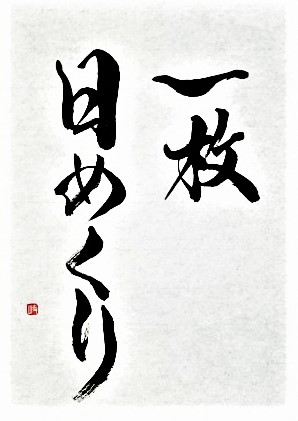 一枚
日めくり